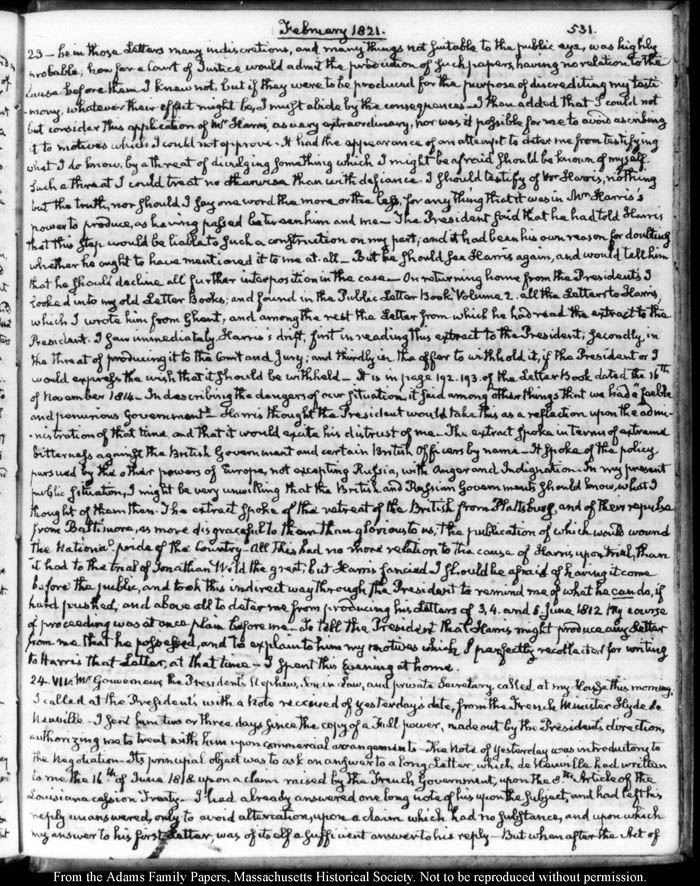 February 1821. 531.
23 — be in those Letters many indiscretions, and many things not suitable to the public eye, was highly
probable; how far a Court of Justice would admit the production of such papers, having no relation to the
cause before them I knew not, but if they were to be produced for the purpose of discrediting my testi
-mony, whatever their effect might be, I must abide by the consequences — I then added that I could not
but consider this application of Mr Harris, as very extraordinary, nor was it possible for me to avoid ascribing
it to motives which I could not approve. It had the appearance of an attempt to deter me from testifying
what I do know, by a threat of divulging something which I might be afraid should be known of myself.
Such a threat I could treat no otherwise than with defiance. I should testify of Mr Harris, nothing
but the truth, nor should I say one word the more or the less, for any thing that it was in Mr Harris's
power to produce, as having passed between him and me — The President said that he had told Harris
that this step would be liable to such a construction on my part, and it had been his own reason for doubting
whether he ought to have mentioned it to me at all — But he should see Harris again, and would tell him
that he should decline all further interposition in the case — On returning home from the President's I
looked into my old Letter Books; and found in the Public Letter Book Volume 2. all the Letters to Harris,
which I wrote him from Ghent, and among the rest the Letter from which he had read the extract to the
President. I saw immediately Harris's drift, first in reading this extract to the President; secondly, in
the threat of producing it to the Court and Jury; and thirdly in the offer to withhold it, if the President or I
would express the wish that it should be withheld — It is in page 192. 193. of the Letter Book dated the 16th
of November 1814. In describing the dangers of our situation, it said among other things that we had a "feeble
and penurious Government" Harris thought the President would take this as a reflection upon the admi
-nistration of that time and that it would excite his distrust of me — The extract spoke in terms of extreme
bitterness against the British Government and certain British Officers by name — It spoke of the policy
pursued by the other powers of Europe, not excepting Russia, with anger and Indignation — In my present
public situation, I might be very unwilling that the British and Russian Governments should know, what I
thought of them then. The extract spoke of the retreat of the British from Plattsburg, and of their repulse
from Baltimore, as more disgraceful to them than glorious to us, the publication of which would wound
the National pride of the Country — All this had no more relation to the cause of Harris upon trial, than
it had to the trial of Jonathan Wild the great; but Harris fancied I should be afraid of having it come
before the public, and took this indirect way through the President to remind me of what he can do, if
hard pushed; and above all to deter me from producing his Letters of 3, 4. and 5. June 1812 My course
of proceeding was at once plain before me — To tell the President that Harris might produce any Letter
from me that he possessed, and to explain to him my motives which I perfectly recollected for writing
to Harris that Letter, at that time — I spent this Evening at home.
24. VII. Mr Gouverneur, the President's Nephew, Son in Law, and private Secretary called at my House this morning,
I called at the President's with a Note received of yesterday's date, from the French Minister Hyde de
Neuville — I sent him two or three days since the copy of a Full power, made out by the President's direction,
authorizing me to treat with him upon commercial arrangements — The Note of yesterday was introductory to
the Negotiation — Its principal object was to ask an answer to a long Letter, which de Neuville had written
to me the 16th of June 1818 upon a claim raised by the French Government, upon the 8th Article of the
Louisiana cession Treaty — I had already answered one long note of his upon the subject, and had left his
reply unanswered, only to avoid altercation, upon a claim which had no substance, and upon which
my answer to his first Letter, was of itself a sufficient answer to his reply — But when after the Act of
From the Adams Family Papers, Massachusetts Historical Society. Not to be reproduced without permission.